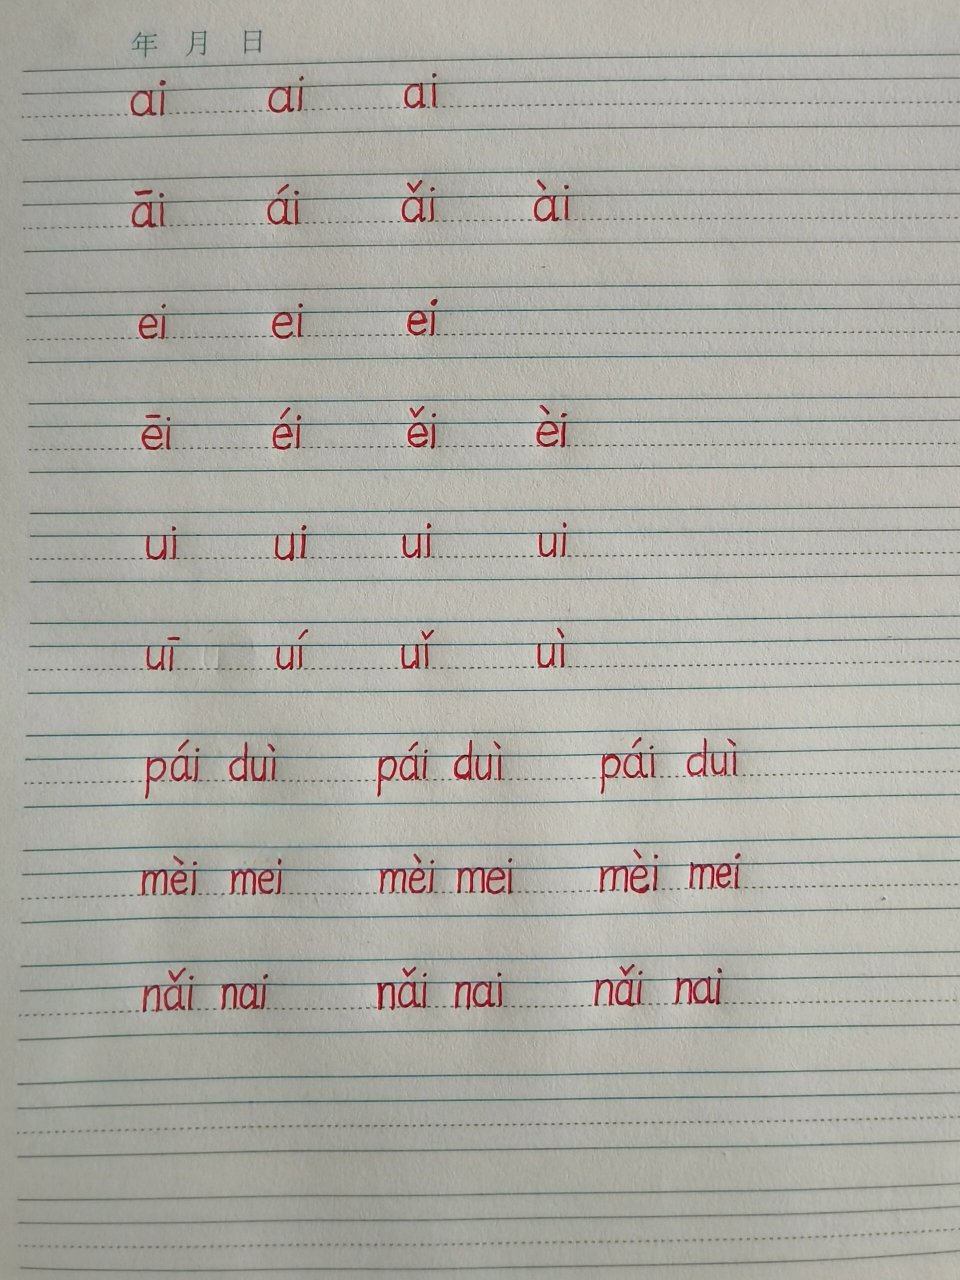 年 月 日
ai ai ai
āi ái ǎi ài
ei ei ei
ēi éi ěi èi
ui ui ui ui
uī uí uǐ uì
pái duì pái duì pái duì
mèi mei mèi mei mèi mei
nǎi nai nǎi nai nǎi nai